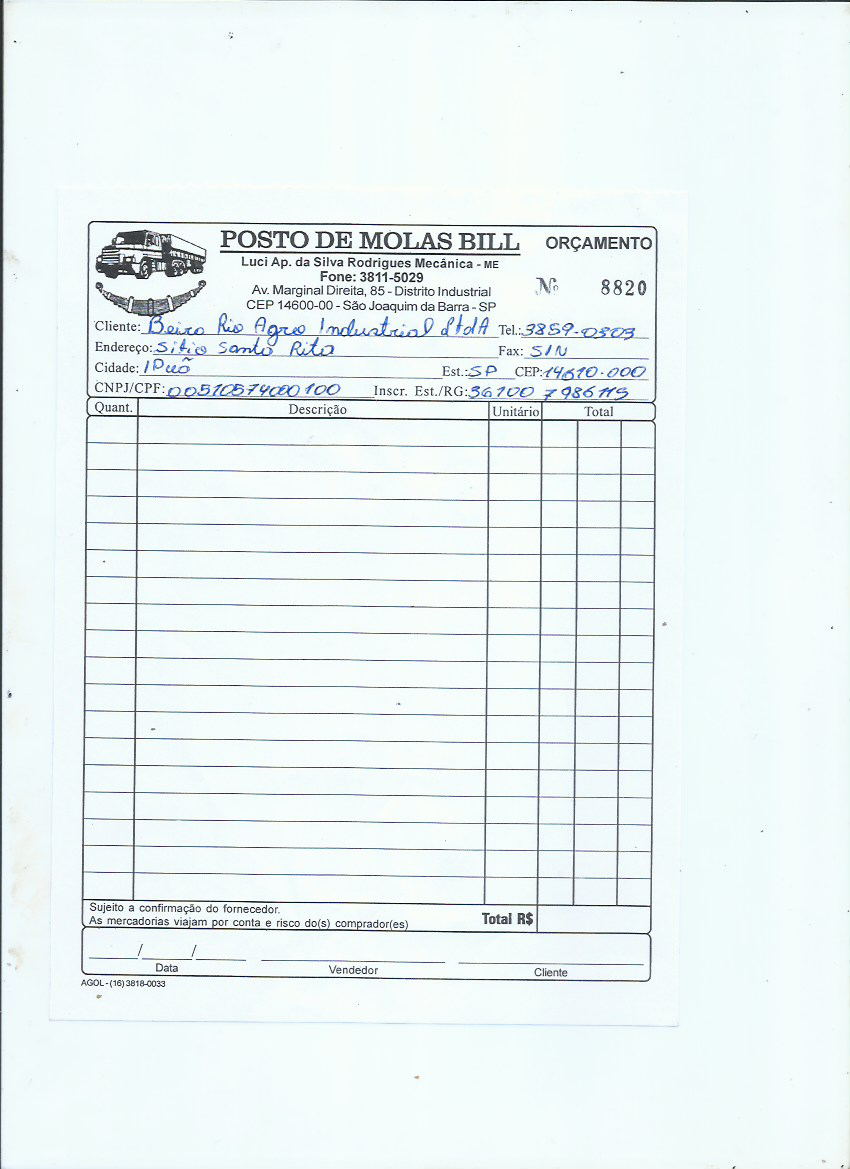 POSTO DE MOLAS BILL
ORÇAMENTO
Luci Ap. da Silva Rodrigues Mecânica - ME
Fone: 3811-5029
Nº 8820
Av. Marginal Direita, 85 - Distrito Industrial
CEP 14600-00 - São Joaquim da Barra - SP
Cliente: Beira Rio Agro Industrial LtdA Tel.: 3859-0303
Endereço: Sitio Santa Rita Fax: S/N
Cidade: IPuã Est.: SP CEP: 14610-000
CNPJ/CPF: 00510574000100 Inscr. Est./RG: 36100 7986115
Quant. Descrição Unitário Total
Sujeito a confirmação do fornecedor.
As mercadorias viajam por conta e risco do(s) comprador(es) Total R$
/ /
Data Vendedor Cliente
AGOL - (16) 3818-0033